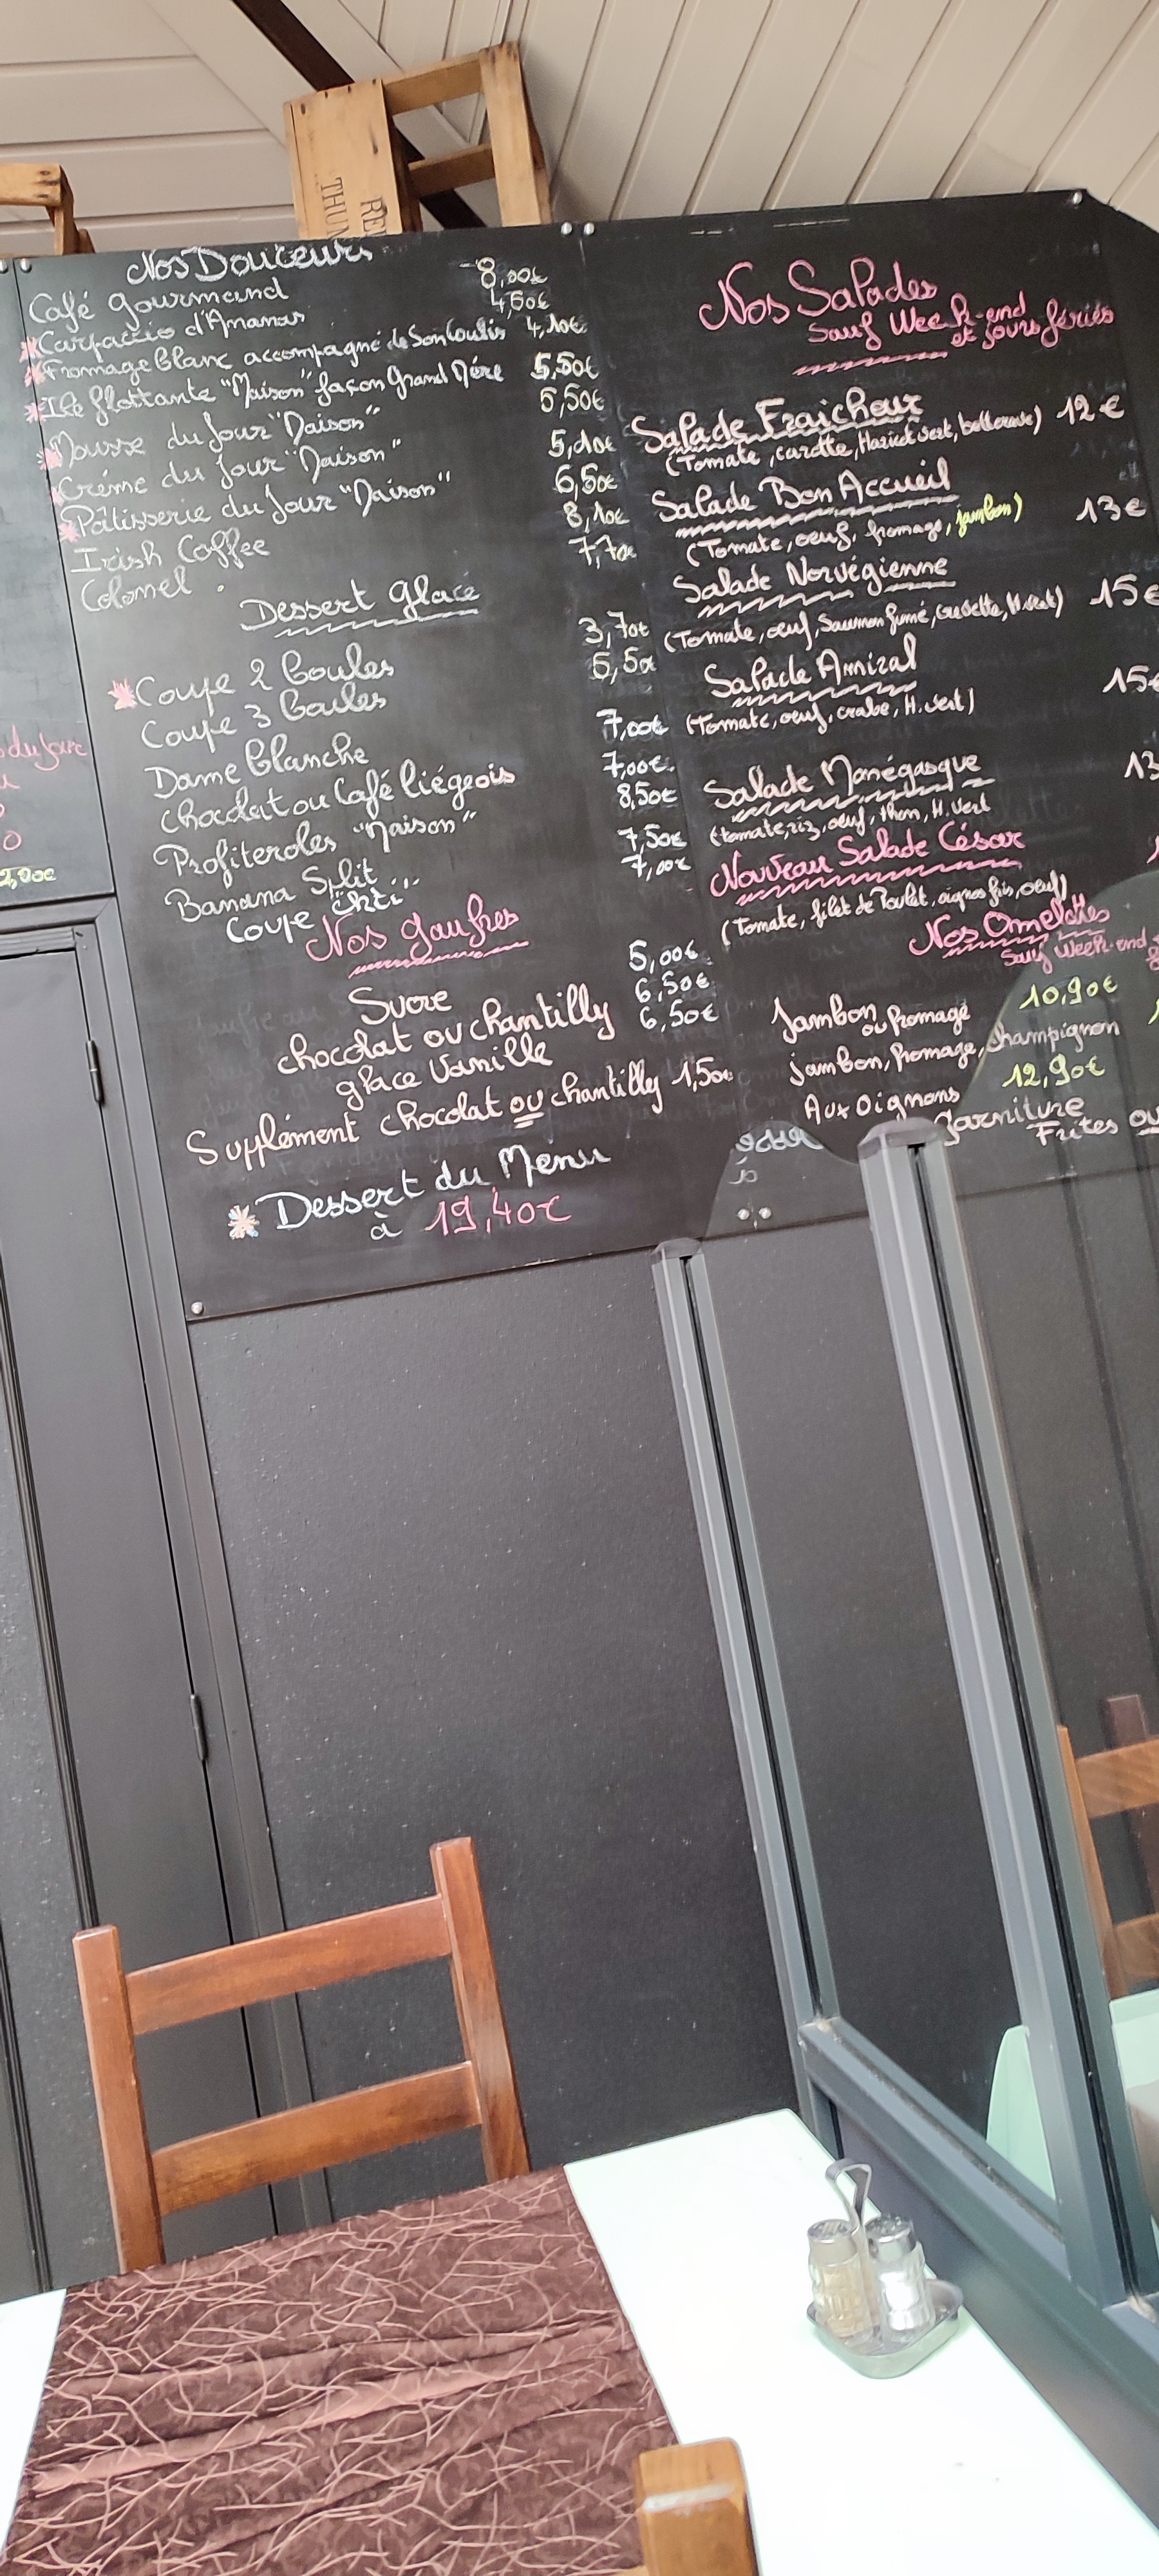 REI
THUN
Nos Douceurs
Café gourmand 8,00€
Carpaccio d'Ananas 4,60€
Fromage Blanc accompagné de Son Coulis 4,10€
Ile flottante "Maison" façon Grand Mère 5,50€
Mousse du Jour "Maison" 5,50€
Crème du Jour "Maison" 5,10€
Pâtisserie du Jour "Maison" 6,50€
Irish Coffee 8,10€
Colonel 7,70€
Dessert glacé
Coupe 2 boules 3,70€
Coupe 3 boules 5,50€
Dame blanche 7,00€
chocolat ou Café liégeois 7,00€
Profiteroles "Maison" 8,50€
Banana Split 7,50€
Coupe chti... 7,00€
Nos gaufres
Sucre 5,00€
chocolat ou chantilly 6,50€
glace vanille 6,50€
Supplément chocolat ou chantilly 1,50€
Dessert du Menu
à 19,40€
Nos Salades
Sauf Week-end
et jours fériés
Salade Fraicheur 12€
(Tomate, carotte, Haricot vert, betterave)
Salade Bon Accueil 13€
(Tomate, oeuf, fromage, jambon)
Salade Norvégienne 15€
(Tomate, oeuf, Saumon fumé, Crevette, H. vert)
Salade Amiral 15€
(Tomate, oeuf, crabe, H. vert)
Salade Monégasque 13
(tomate, riz, oeuf, thon, H. vert
Nouveau Salade César
(Tomate, filet de Poulet, oignons fris, oeuf)
Nos Omelettes
Sauf Week-end
10,90€
Jambon
ou fromage
jambon, fromage, champignon
12,90€
Aux Oignons
garniture
Frites ou
du jour
2,00€